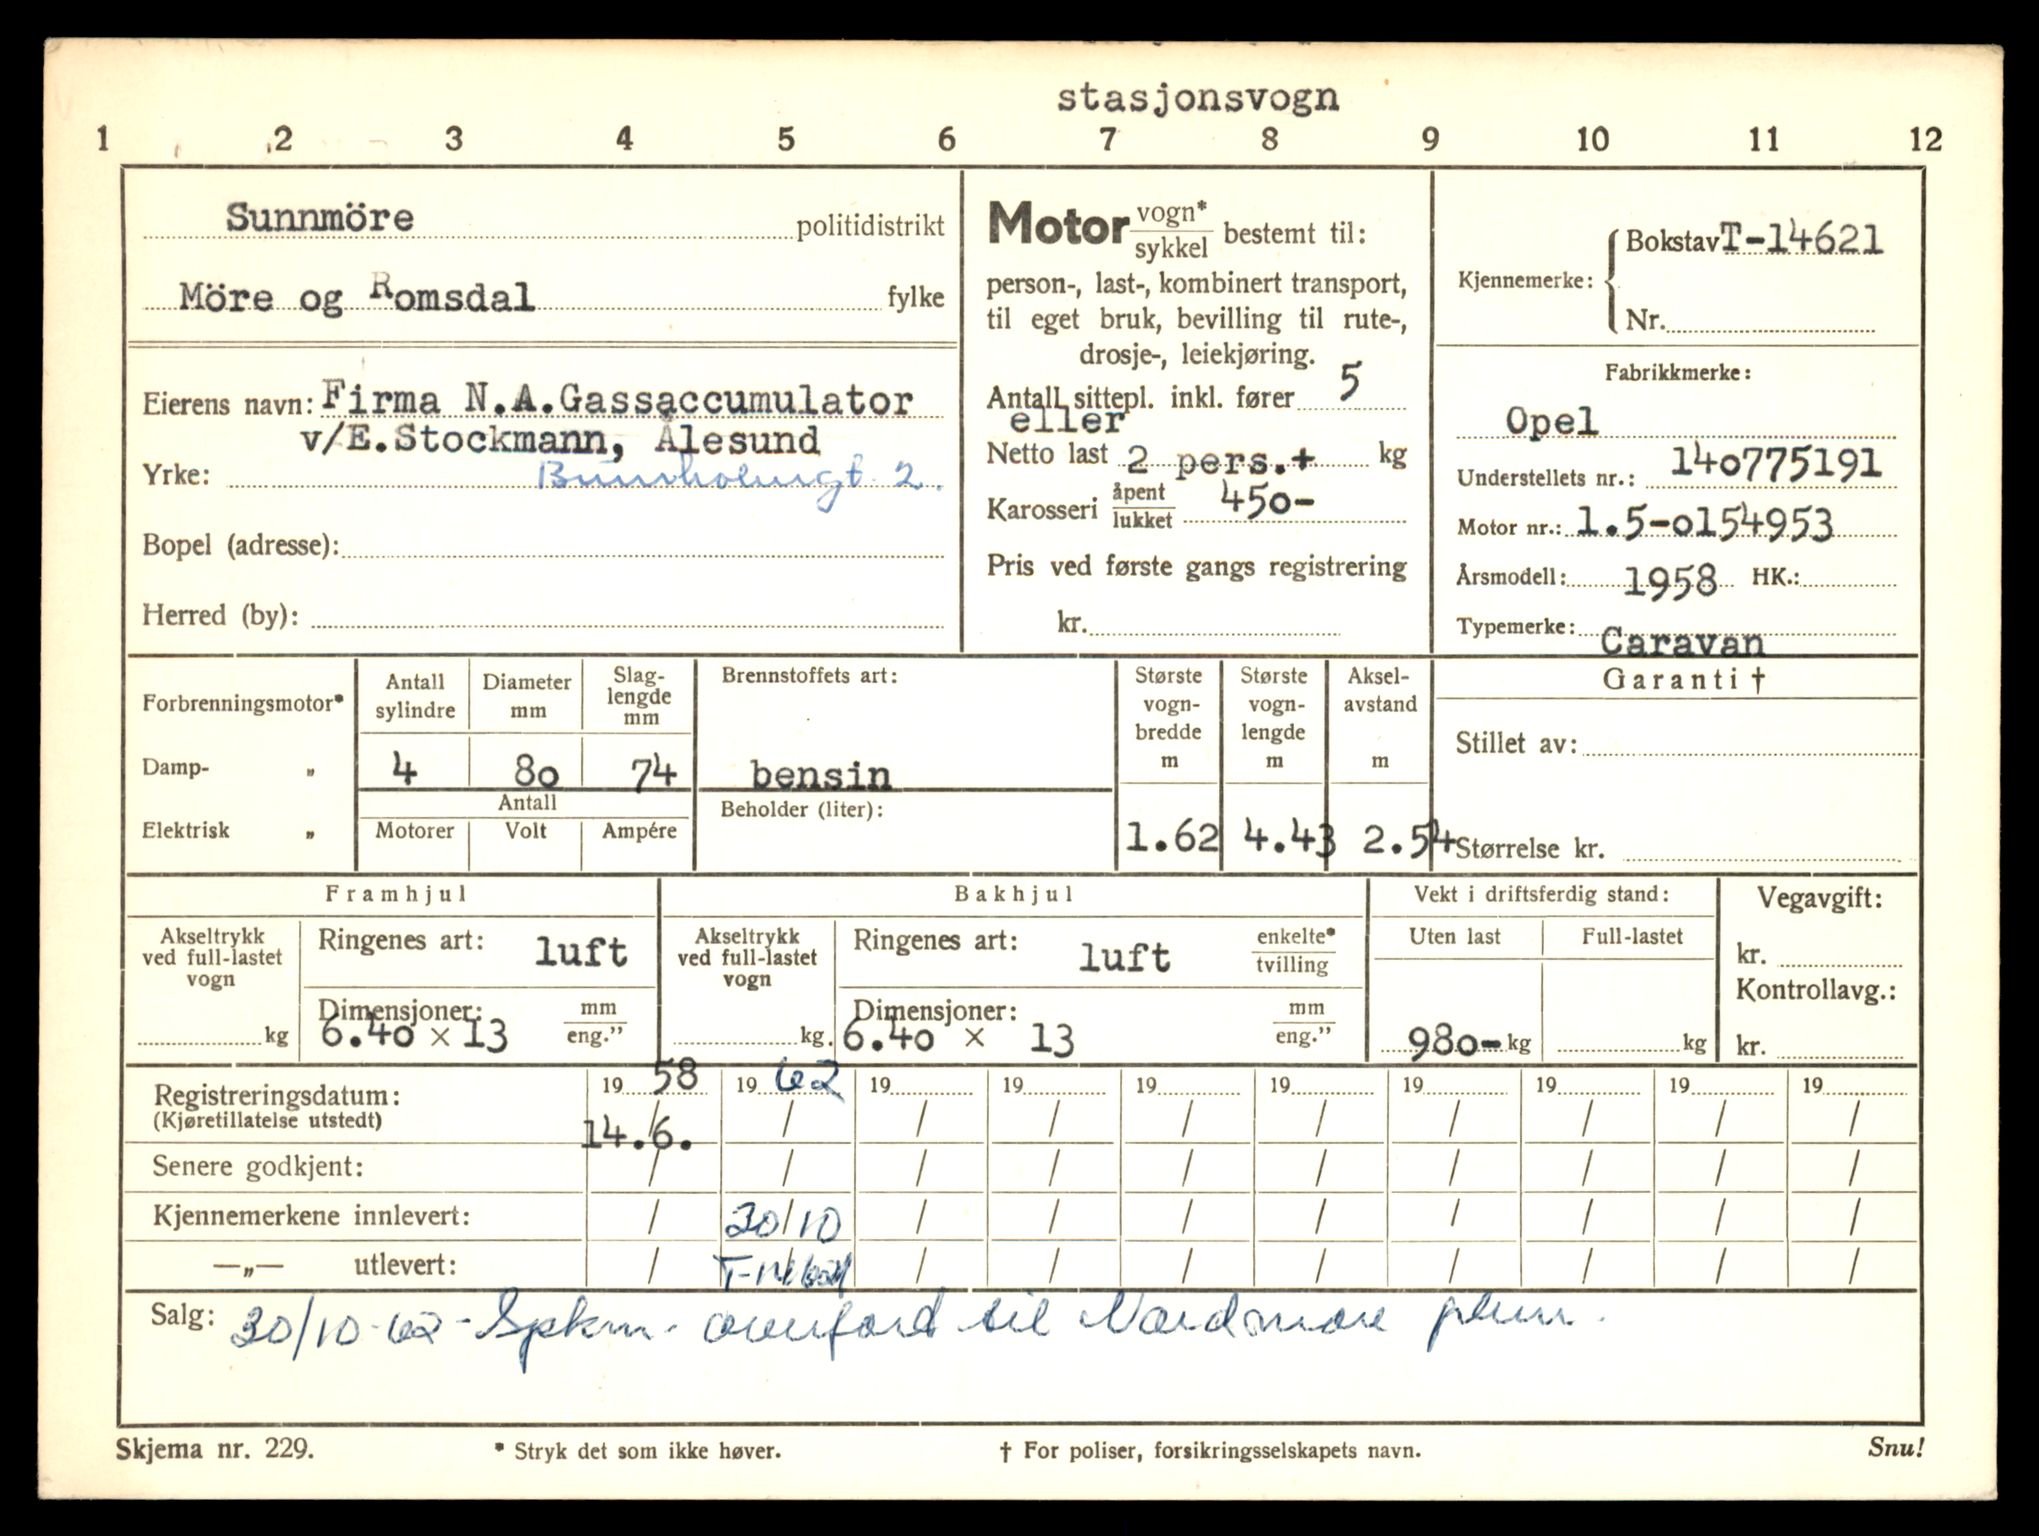 stasjonsvogn
1 2 3 4 5 6 7 8 9 10 11 12
Sunnmöre politidistrikt
Möre og Romsdal fylke
Eierens navn: Firma N.A.Gassaccumulator
v/E.Stockmann, Ålesund
Yrke: 2.
Bopel (adresse):
Herred (by):
Motor vogn* sykkel bestemt til:
person-, last-, kombinert transport,
til eget bruk, bevilling til rute-,
drosje-, leiekjøring.
Antall sittepl. inkl. fører 5
eller
Netto last 2 pers.+ kg
Karosseri åpent lukket 450-
Pris ved første gangs registrering
kr.
Kjennemerke: Bokstav T-14621
Nr.
Fabrikkmerke:
Opel
Understellets nr.: 140775191
Motor nr.: 1.5-0154953
Årsmodell: 1958 HK.:
Typemerke: Caravan
Forbrenningsmotor*
Damp- „
Elektrisk „
Antall sylindre Diameter mm Slag-lengde mm
4 80 74
Antall
Motorer Volt Ampére
Brennstoffets art:
bensin
Beholder (liter):
Største vogn-bredde m Største vogn-lengde m Aksel-avstand m
1.62 4.43 2.54
Garanti †
Stillet av:
Størrelse kr.
Framhjul
Akseltrykk ved full-lastet vogn
kg
Ringenes art: luft
Dimensjoner: mm eng.”
6.40 × 13
Bakhjul
Akseltrykk ved full-lastet vogn
kg.
Ringenes art: luft enkelte* tvilling
Dimensjoner: mm eng.”
6.40 × 13
Vekt i driftsferdig stand:
Uten last Full-lastet
980- kg kg
Vegavgift:
kr.
Kontrollavg.:
kr.
Registreringsdatum: 19 58 19 62 19 19 19 19 19 19 19 19
(Kjøretillatelse utstedt) 14.6. / / / / / / / / /
Senere godkjent: / / / / / / / / / /
Kjennemerkene innlevert: / 30/10 / / / / / / / /
—„— utlevert: / / / / / / / / /
Salg: 30/10-62 - Spkm. overført til Nordmøre
Skjema nr. 229. * Stryk det som ikke høver. † For poliser, forsikringsselskapets navn. Snu!